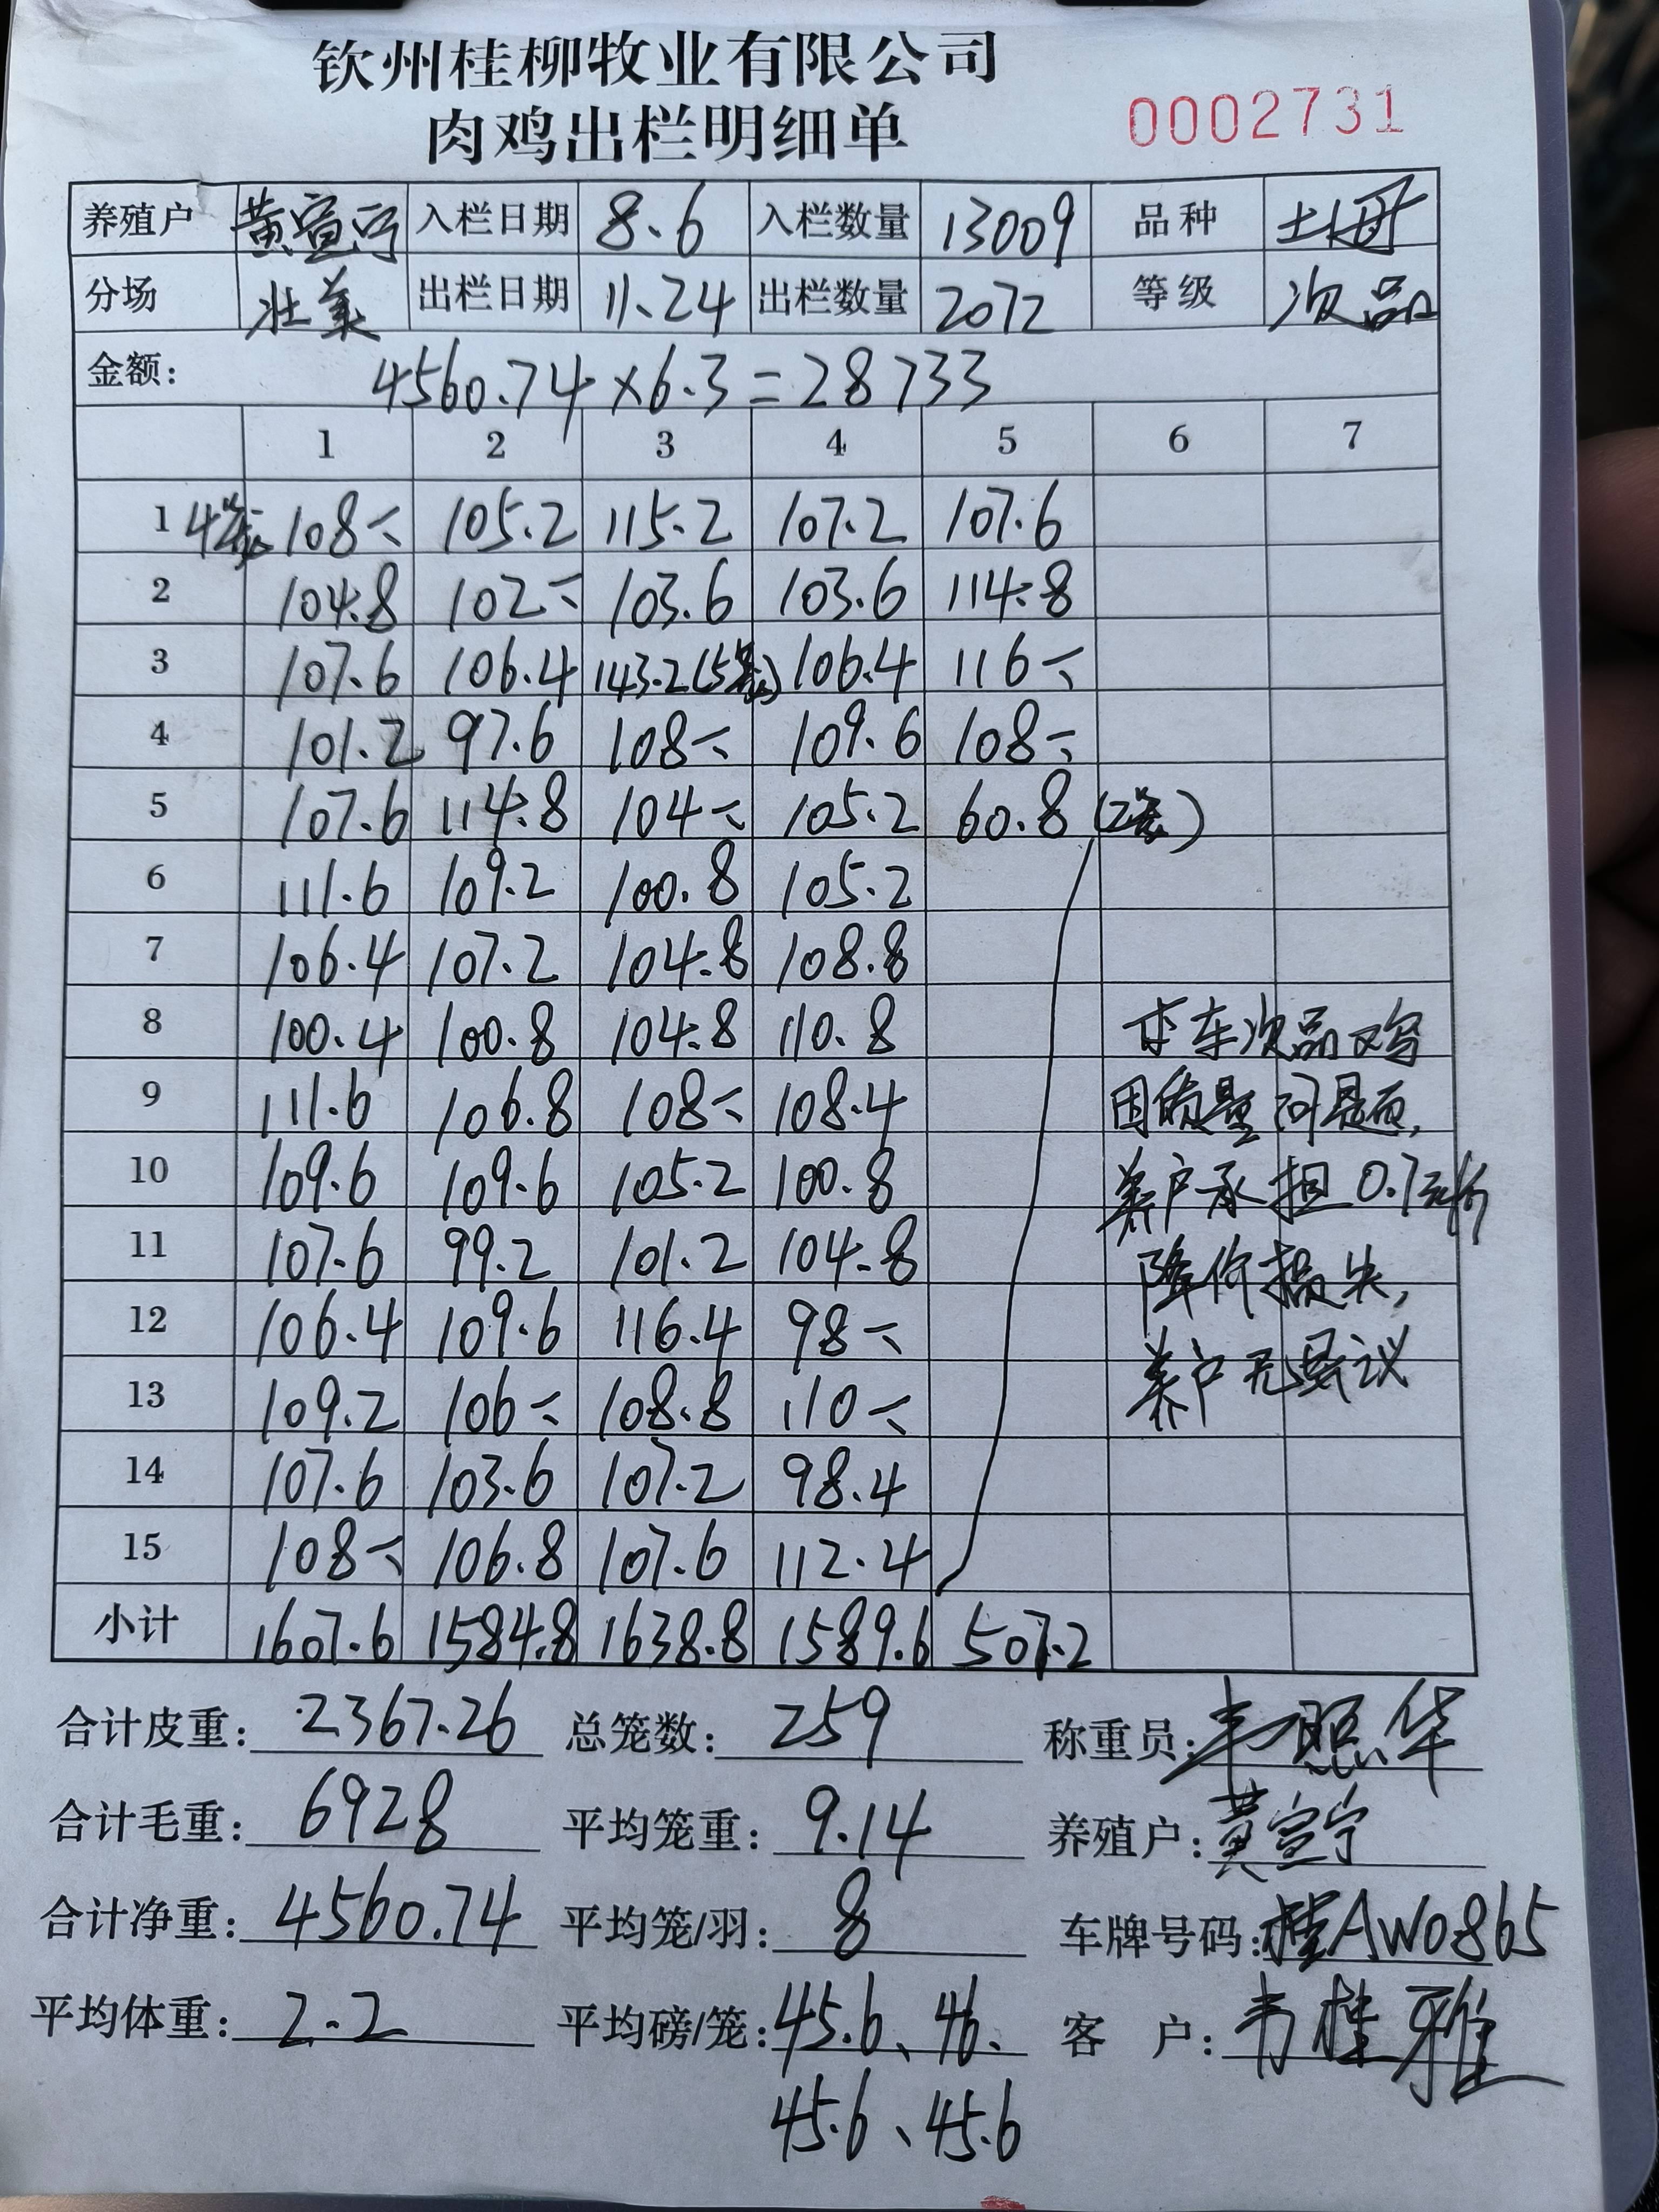 钦州桂柳牧业有限公司
肉鸡出栏明细单
0002731
养殖户 黄宣宁 入栏日期 8.6 入栏数量 13009 品种 土母
分场 壮美 出栏日期 11.24 出栏数量 2072 等级 次品
金额: 4560.74×6.3=28733
1 2 3 4 5 6 7
1 4笼 108- 105.2 115.2 107.2 107.6
2 104.8 102- 103.6 103.6 114.8
3 107.6 106.4 143.2(5笼) 106.4 116-
4 101.2 97.6 108- 109.6 108-
5 107.6 114.8 104- 105.2 60.8 (2笼)
6 111.6 109.2 100.8 105.2
7 106.4 107.2 104.8 108.8
8 100.4 100.8 104.8 110.8 本车次品鸡
9 111.6 106.8 108- 108.4 因质量问题,
10 109.6 109.6 105.2 100.8 养户承担0.7元/斤
11 107.6 99.2 101.2 104.8 降价损失,
12 106.4 109.6 116.4 98-
13 109.2 106- 108.8 110- 养户无异议
14 107.6 103.6 107.2 98.4
15 108- 106.8 107.6 112.4
小计 1607.6 1584.8 1638.8 1589.6 507.2
合计皮重: 2367.26 总笼数: 259 称重员: 华
合计毛重: 6928 平均笼重: 9.14 养殖户: 黄宣宁
合计净重: 4560.74 平均笼/羽: 8 车牌号码: 桂AW0865
平均体重: 2.2 平均磅/笼: 45.6、46、 客 户: 韦桂雅
45.6、45.6